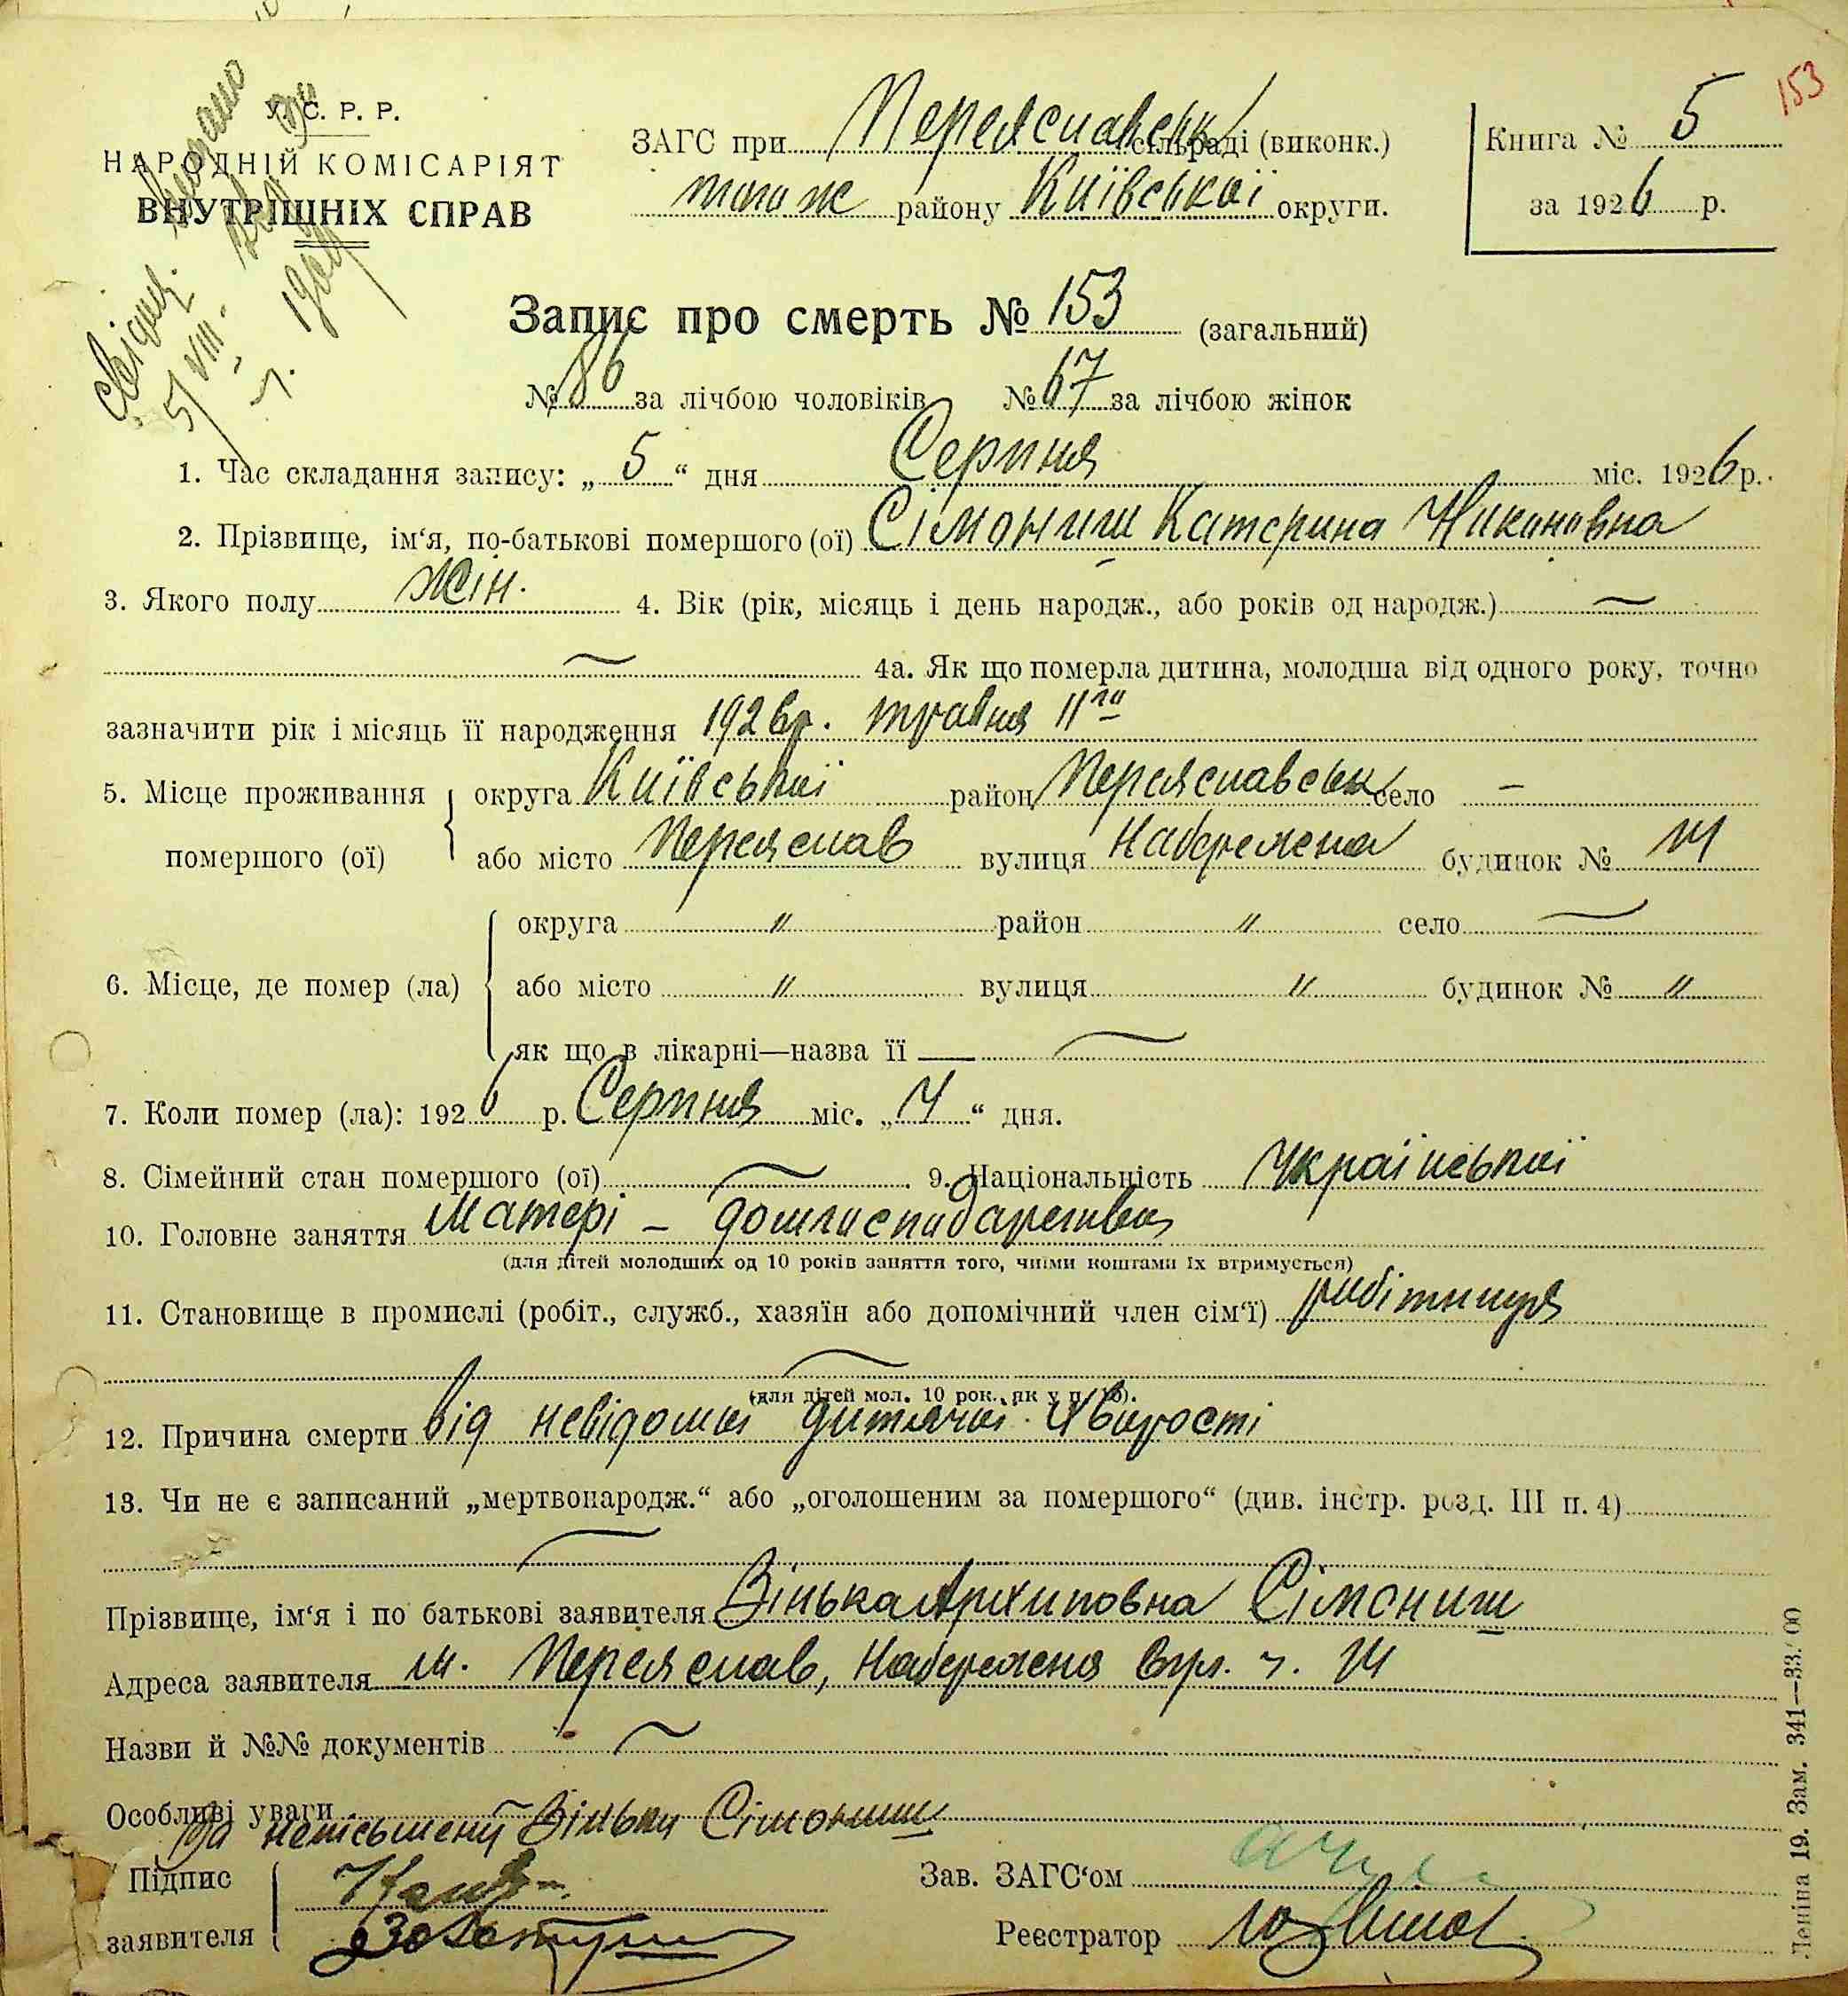 153
У. С. Р. Р.
НАРОДНІЙ КОМІСАРІЯТ
ВНУТРІШНІХ СПРАВ
ЗАГС при Переяславськ сільраді (виконк.)
того ж району Київської округи.
Книга № 5
за 1926 р.
Свідоц. видано
5/VIII
Запис про смерть № 153 (загальний)
№ 86 за лічбою чоловіків № 67 за лічбою жінок
1. Час складання запису: „ 5 “ дня Серпня міс. 1926 р.
2. Прізвище, ім‘я, по-батькові помершого (ої) Сімониш Катерина Никоновна
3. Якого полу жін. 4. Вік (рік, місяць і день народж., або років од народж.) —
— 4а. Як що померла дитина, молодша від одного року, точно
зазначити рік і місяць її народження 1926 р. травня 11го
5. Місце проживання помершого (ої)
округа Київської район Переяславськ село —
або місто Переяслав вулиця Набережна будинок №
6. Місце, де помер (ла)
округа „ район „ село —
або місто „ вулиця „ будинок № „
як що в лікарні—назва її —
7. Коли помер (ла): 1926 р. Серпня міс. „ 4 “ дня.
8. Сімейний стан помершого (ої) — 9. Національність Української
10. Головне заняття Матері –
(для дітей молодших од 10 років заняття того, чиїми коштами їх втримується)
11. Становище в промислі (робіт., служб., хазяїн або допомічний член сім‘ї) робітниця
—
(для дітей мол. 10 рок., як у п. 10).
12. Причина смерти від невідомої дитячої хворости
13. Чи не є записаний „мертвонародж.“ або „оголошеним за помершого“ (див. інстр. розд. III п. 4)
—
Прізвище, ім‘я і по батькові заявителя Зінька Архиповна Сімониш
Адреса заявителя м. Переяслав, Набережна вул. ч.
Назви й №№ документів —
Особливі уваги —
За неписьмену Зіньку Сімониш
Підпис заявителя
Зав. ЗАГС‘ом
Реєстратор
Леніна 19. Зам. 341—33.